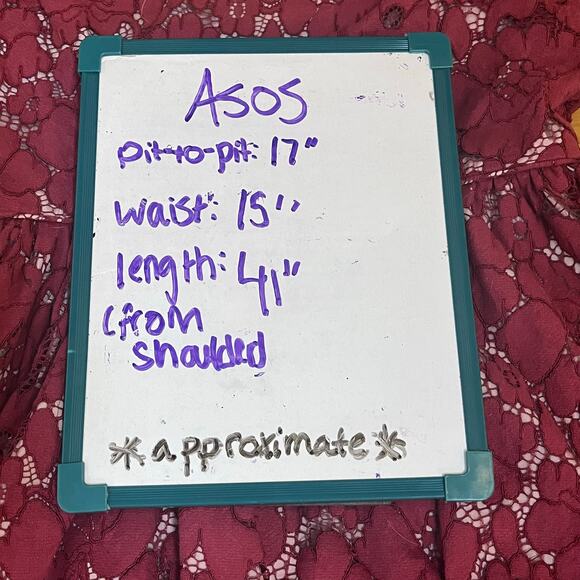 Asos
pit-to-pit: 17"
waist: 15"
length: 41"
(from
shoulded
*approximate*